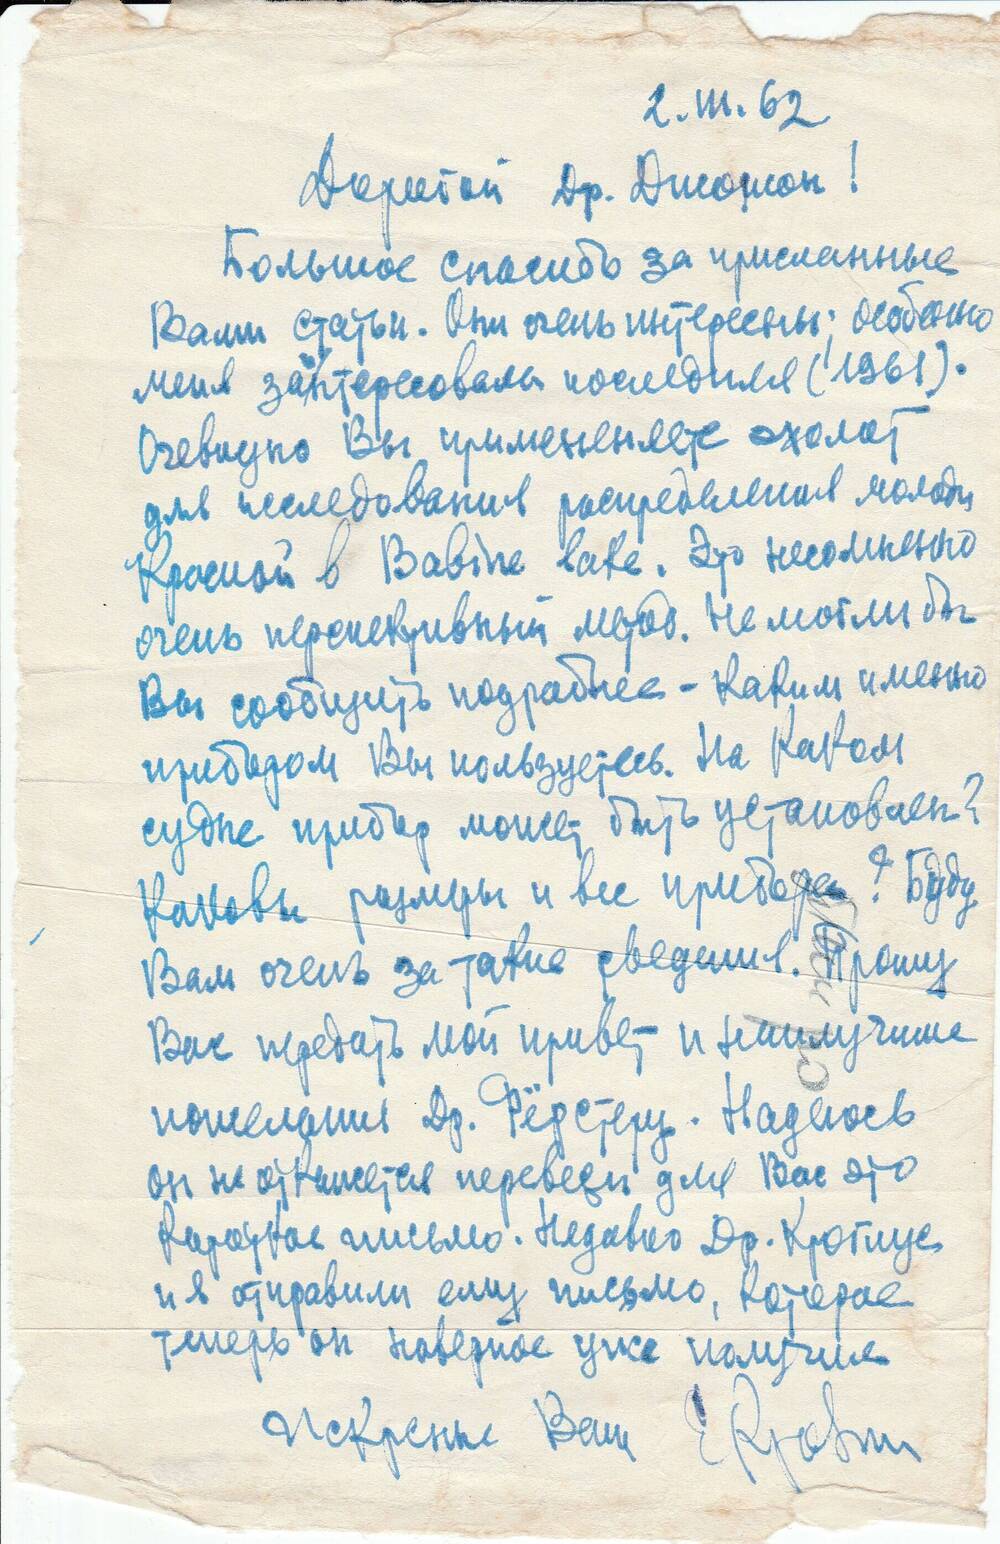 2.III.62
Дорогой Др. Джонсон!
Большое спасибо за присланные
Вами статьи. Они очень интересны; особенно
меня заинтересовала последняя (1961).
Очевидно Вы применяете эхолот
для исследования распределения молоди
Красной в Babine lake. Это несомненно
очень перспективный метод. Не могли бы
Вы сообщить подробнее - каким именно
прибором Вы пользуетесь. На каком
судне прибор может быть установлен?
Каковы размеры и вес прибора? Буду
Вам очень за такие сведения. Прошу
Вас передать мой привет и наилучшие
пожелания Др. Фёрстеру. Надеюсь
он не откажется перевести для Вас это
короткое письмо. Недавно Др. Крогиус
и я отправили ему письмо, которое
теперь он наверное уже получил
Искренне Ваш